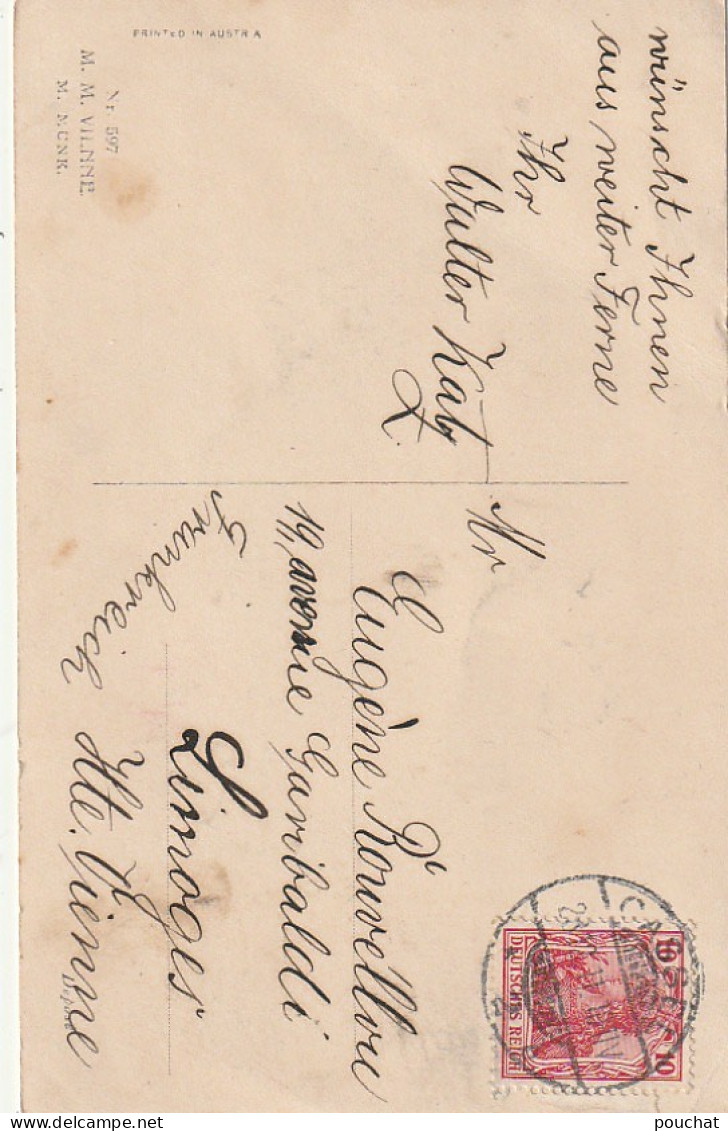 PRINTED IN AUSTRIA
Nr. 597
M. M. VIENNE.
M. MUNK.
wünscht Ihnen
aus weiter Ferne
Ihr
Walter Katz
Mr
Eugène Rouvellou
19, avenue Garibaldi
Limoges
Frankreich Hte. Vienne
10 10
DEUTSCHES REICH
CASSEL
pouchat